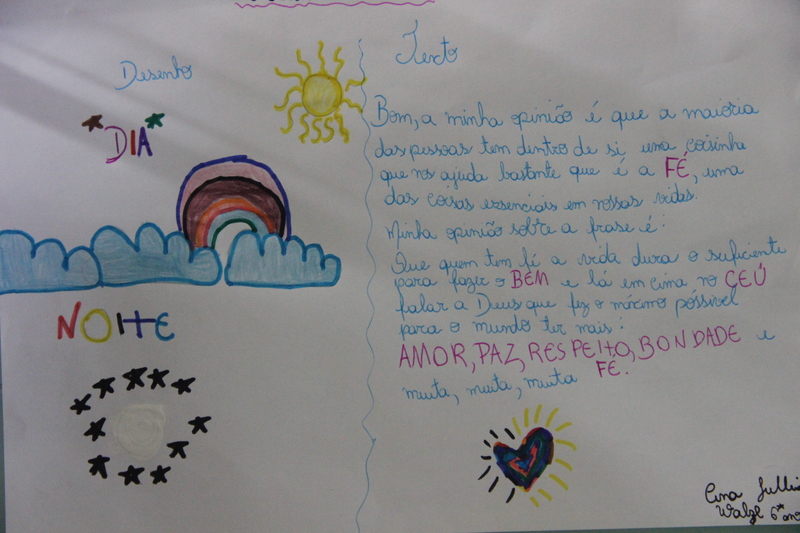 Desenho
DIA
NOITE
Texto
Bom, a minha opinião é que a maioria
das pessoas tem dentro de si uma coisinha
que nos ajuda bastante que é a FÉ, uma
das coisas essenciais em nossas vidas.
Minha opinião sobre a frase é:
Que quem tem fé a vida dura o suficiente
para fazer o BEM e lá em cima no CEÚ
falar a Deus que fez o máximo póssivel
para o mundo ter mais:
AMOR, PAZ, RESPEITO, BONDADE e
muita, muita, muita FÉ.
Ana
Walze 6º ano